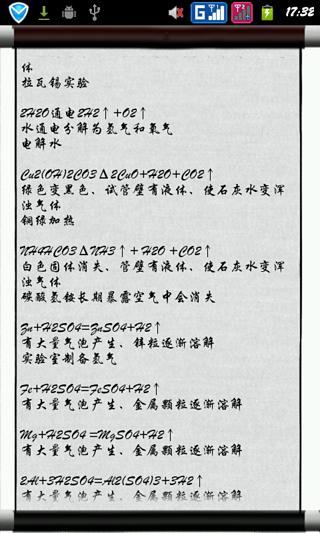 17:32
体
拉瓦锡实验
2H2O通电2H2↑+O2↑
水通电分解为氢气和氧气
电解水
Cu2(OH)2CO3Δ2CuO+H2O+CO2↑
绿色变黑色、试管壁有液体、使石灰水变浑
浊气体
铜绿加热
NH4HCO3ΔNH3↑+H2O+CO2↑
白色固体消失、管壁有液体、使石灰水变浑
浊气体
碳酸氢铵长期暴露空气中会消失
Zn+H2SO4=ZnSO4+H2↑
有大量气泡产生、锌粒逐渐溶解
实验室制备氢气
Fe+H2SO4=FeSO4+H2↑
有大量气泡产生、金属颗粒逐渐溶解
Mg+H2SO4=MgSO4+H2↑
有大量气泡产生、金属颗粒逐渐溶解
2Al+3H2SO4=Al2(SO4)3+3H2↑
有大量气泡产生、金属颗粒逐渐溶解